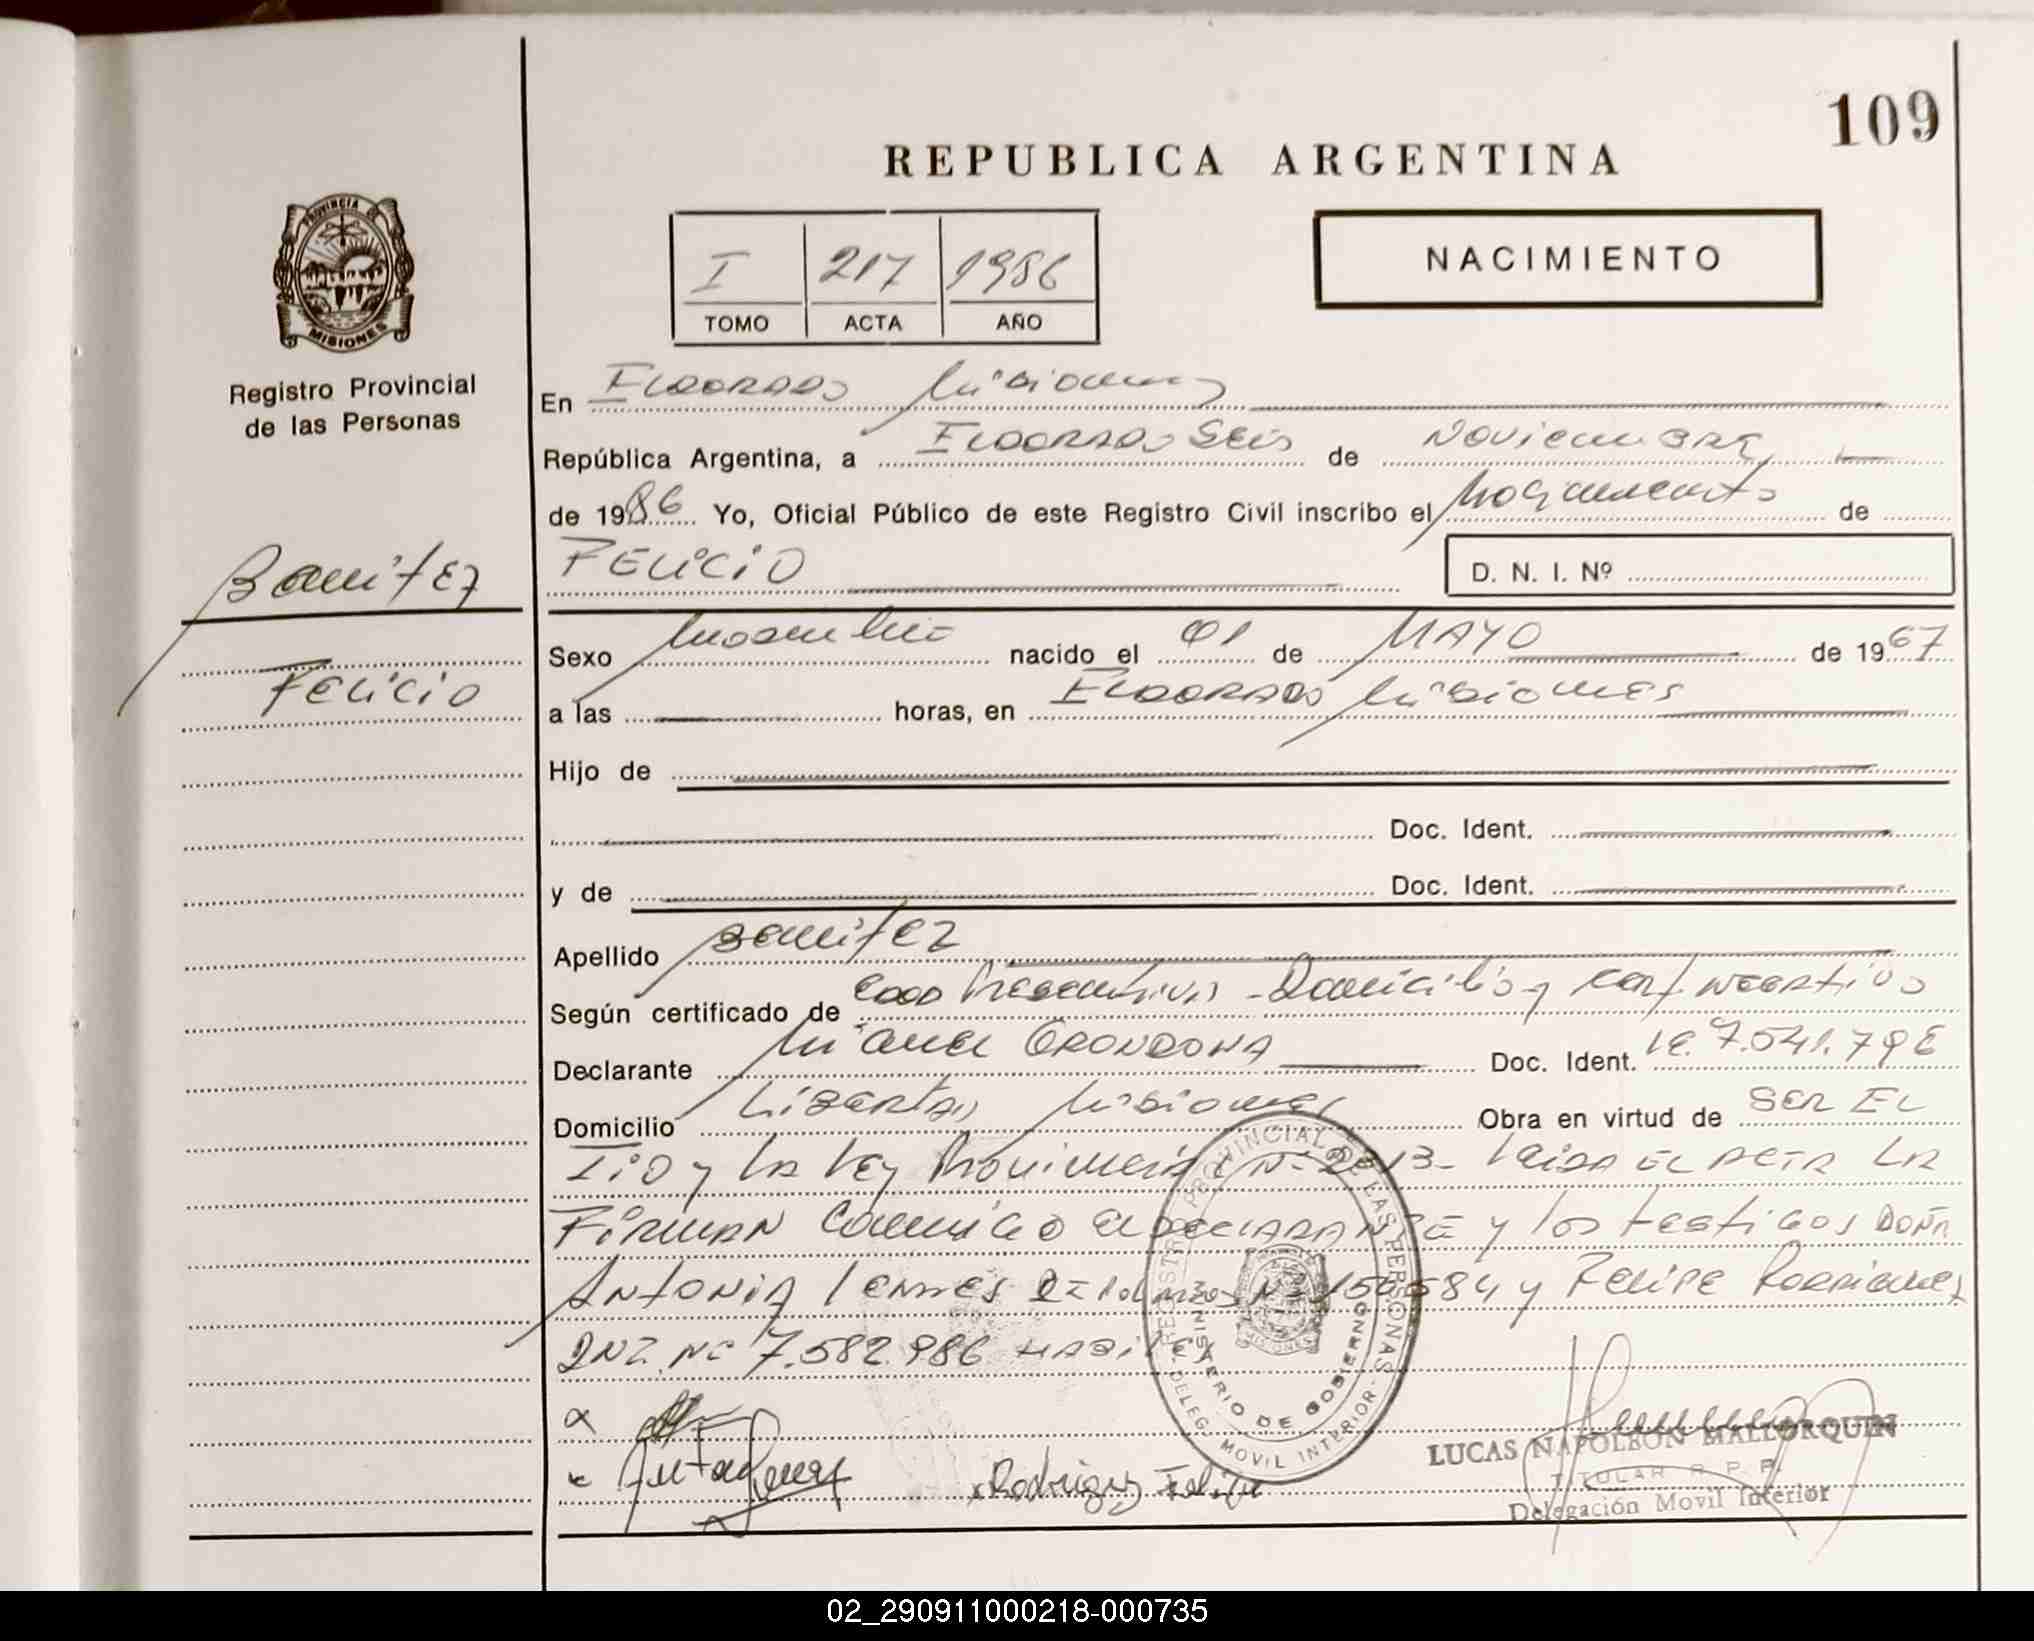 109
REPUBLICA ARGENTINA
PROVINCIA DE
MISIONES
Registro Provincial
de las Personas
I 217 1986
TOMO ACTA AÑO
NACIMIENTO
En ELDORADO Misiones
República Argentina, a ELDORADO SEis de NOViEMBRE
de 1986 Yo, Oficial Público de este Registro Civil inscribo el Nacimiento de
FELiCiO
D. N. I. Nº
Benitez
FELiCiO
Sexo Masculino nacido el 01 de MAYO de 1967
a las horas, en ELDORADO Misiones
Hijo de
Doc. Ident.
y de Doc. Ident.
Apellido Benitez
Según certificado de Edad Presuntiva - Domicilio y Cert. NEGAtiVO
Declarante Miguel GRONDONA Doc. Ident. LE. 7.541.796
Domicilio LiBERtAD Misiones Obra en virtud de SER EL
TiO y LA LEy Provincial Nº LEiDA EL ACTA LA
FiRMAN Conmigo El DECLARANTE y los testigos DOÑA
ANTONiA y FELiPE RODRIGUEZ
DNI. Nº 7.582.986 HABiLES
REGISTRO PROVINCIAL DE LAS PERSONAS
MINISTERIO DE GOBIERNO
- DELEG. MOVIL INTERIOR -
x Rodriguez Felipe
LUCAS NAPOLEON MALLORQUIN
TITULAR R. P. P.
Delegación Movil Interior
02_290911000218-000735